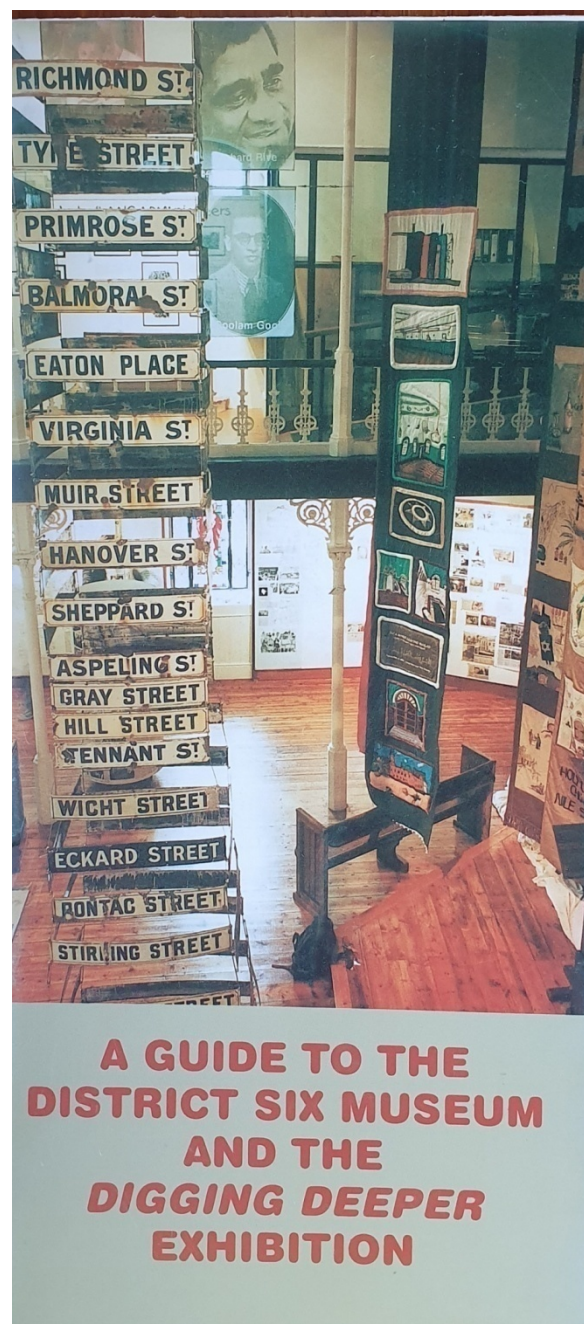 RICHMOND ST.
STREET
PRIMROSE ST
BALMORAL ST
EATON PLACE
VIRGINIA ST
MUIR STREET
HANOVER ST
SHEPPARD ST
ASPELING ST
GRAY STREET
HILL STREET
TENNANT ST
WICHT STREET
ECKARD STREET
PONTAC STREET
STIRLING STREET
STREET
A GUIDE TO THE
DISTRICT SIX MUSEUM
AND THE
DIGGING DEEPER
EXHIBITION